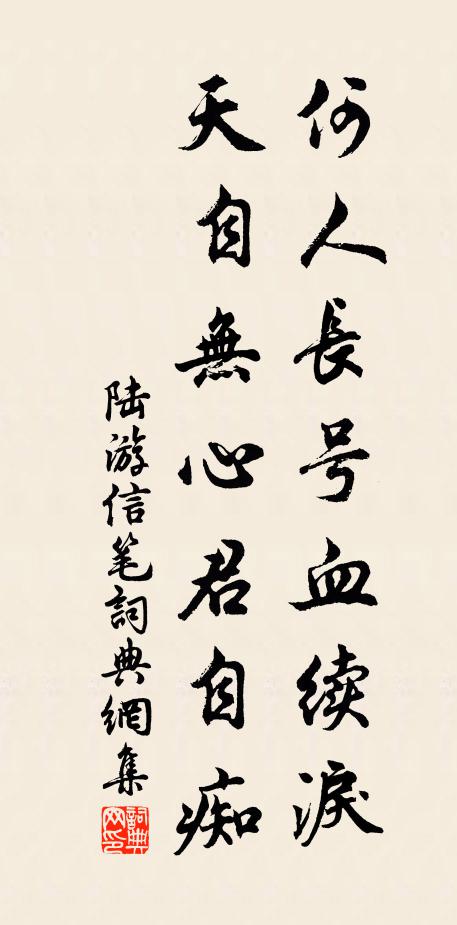 何人長号血续淚
天自無心君自痴
陆游信笔詞典網集
詞典网印